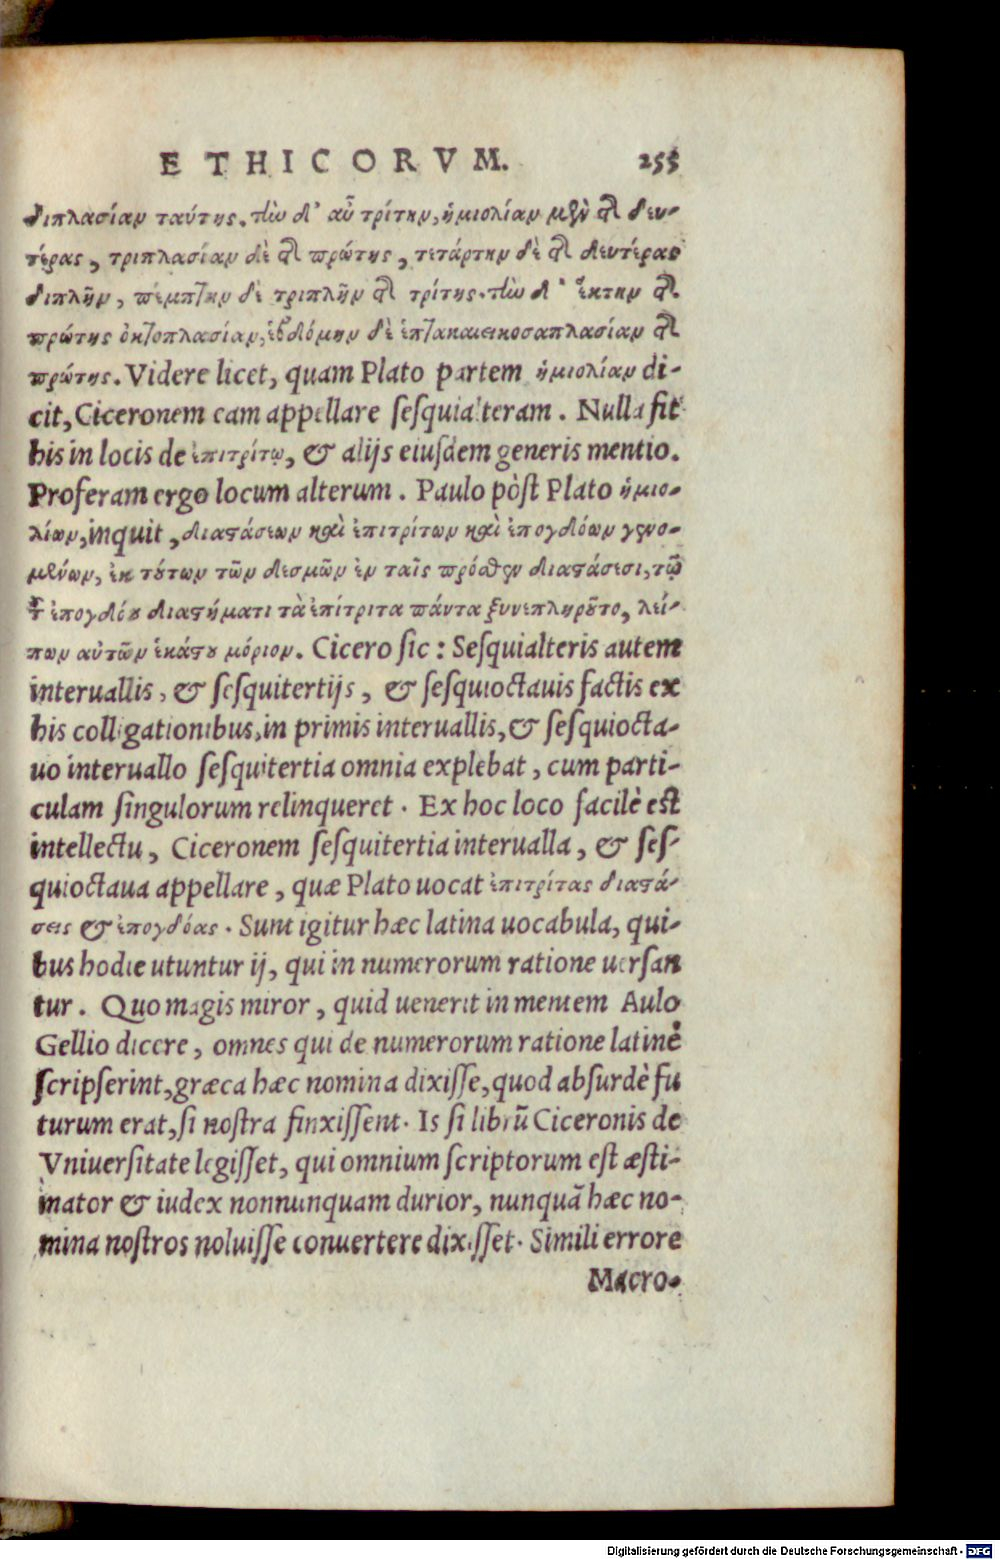 ETHICORVM. 255
διπλασίαν ταύτης. τὴν δ' αὖ τρίτην, ἡμιολίαν μὲν τῆς δευ-
τέρας, τριπλασίαν δὲ τῆς πρώτης, τετάρτην δὲ τῆς δευτέρας
διπλῆν, πέμπτην δὲ τριπλῆν τῆς τρίτης. τὴν δ' ἕκτην τῆς
πρώτης ὀκταπλασίαν, ἑβδόμην δὲ ἑπτακαιεικοσαπλασίαν τῆς
πρώτης. Videre licet, quam Plato partem ἡμιολίαν di-
cit, Ciceronem eam appellare ſeſquialteram. Nulla fit
his in locis de ἐπιτρίτῳ, & alijs eiuſdem generis mentio.
Proferam ergo locum alterum. Paulo pòſt Plato ἡμιο-
λίων, inquit, διαστάσεων καὶ ἐπιτρίτων καὶ ἐπογδόων γενο-
μένων, ἐκ τούτων τῶν δεσμῶν ἐν ταῖς πρόσθεν διαστάσεσι, τῷ
τοῦ ἐπογδόου διαστήματι τὰ ἐπίτριτα πάντα ξυνεπληροῦτο, λεί-
πων αὐτῶν ἑκάστου μόριον. Cicero ſic: Seſquialteris autem
interuallis, & ſeſquitertijs, & ſeſquioctauis factis ex
his colligationibus, in primis interuallis, & ſeſquiocta-
uo interuallo ſeſquitertia omnia explebat, cum parti-
culam ſingulorum relinqueret. Ex hoc loco facilè eſt
intellectu, Ciceronem ſeſquitertia interualla, & ſeſ-
quioctaua appellare, quæ Plato uocat ἐπιτρίτας διαστά-
σεις & ἐπογδόας. Sunt igitur hæc latina uocabula, qui-
bus hodie utuntur ij, qui in numerorum ratione uerſan
tur. Quo magis miror, quid uenerit in mentem Aulo
Gellio dicere, omnes qui de numerorum ratione latinè
ſcripſerint, græca hæc nomina dixiſſe, quod abſurdè fu
turum erat, ſi noſtra finxiſſent. Is ſi librũ Ciceronis de
Vniuerſitate legiſſet, qui omnium ſcriptorum eſt æſti-
mator & iudex nonnunquam durior, nunquã hæc no-
mina noſtros noluiſſe conuertere dixiſſet. Simili errore
Macro-
Digitalisierung gefördert durch die Deutsche Forschungsgemeinschaft - DFG